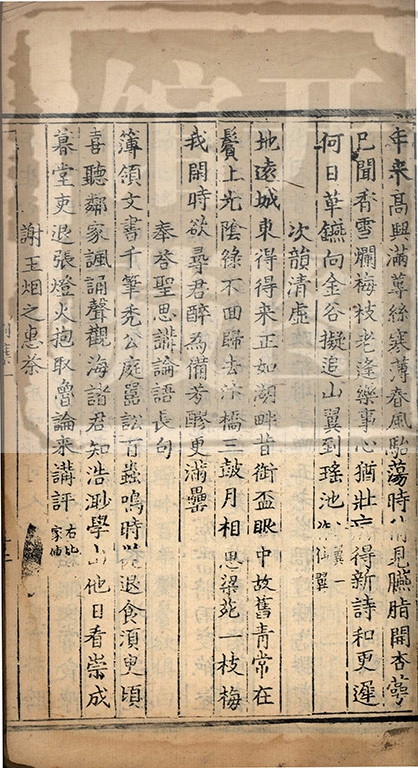 年來高興滿蓴絲寒薄春風駘蕩時 見臙脂開杏萼
已聞香雪爛梅枝老逢樂事心猶壯 得新詩和更遲
何日華鑣向金谷擬追山翼到瑤池 翼一 仙翼
次韻清虛
地遠城東得得來正如湖畔昔銜盃眼中故舊青常在
鬢上光陰綠不回歸去汴橋三鼓月相思梁苑一枝梅
我閑時欲尋君醉為備芳醪更滿罍
奉答聖思講論語長句
簿領文書千筆禿公庭嚚訟百蟲鳴時從退食須臾頃
喜聽鄰家諷誦聲觀海諸君知浩渺學山他日看崇成
暮堂吏退張燈火抱取魯論來講評
謝王烟之惠茶